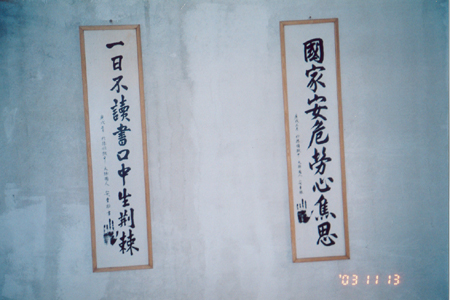 國家安危勞心焦思
一日不讀書口中生荊棘
'03 11 13